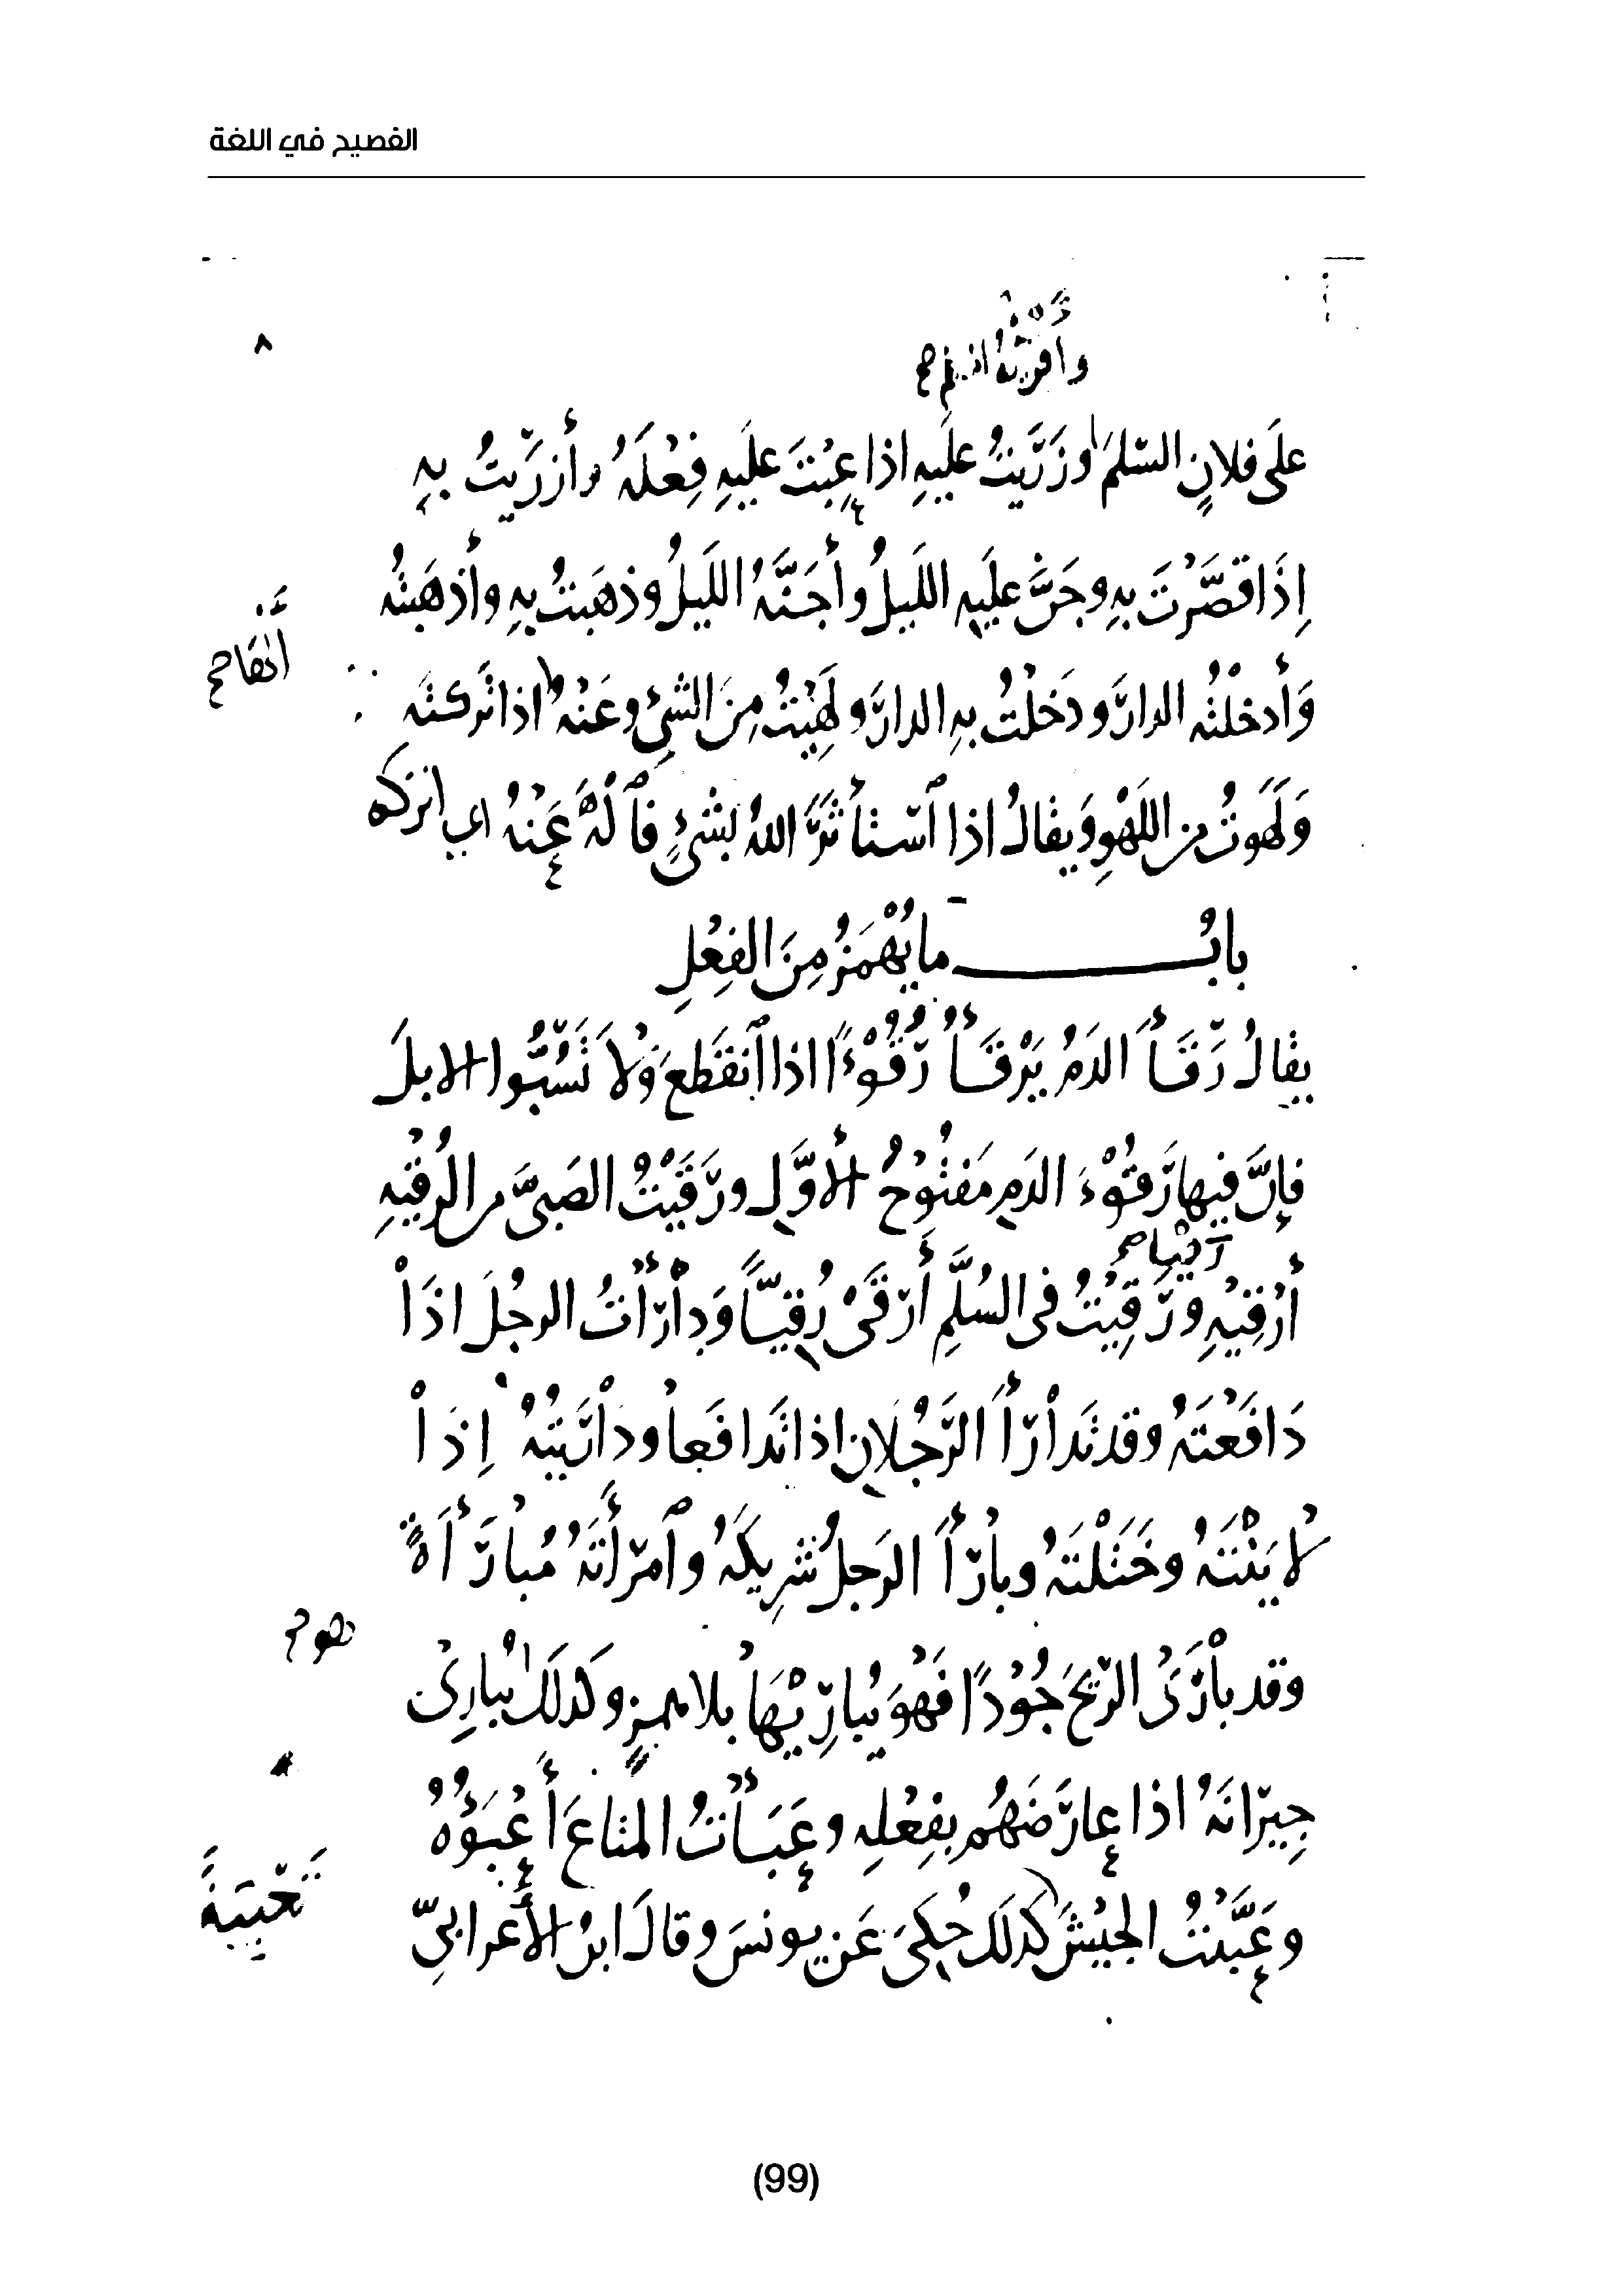 الفصيح في اللغة
٨
على فلانٍ السّلمَ وزَرَيتُ علَيهِ اذا عِبْتَ علَيهِ فِعْلَهُ وأزرَيتُ بهِ
إِذَا قصَّرْتَ بهِ وجَنَّ علَيهِ الليلُ وأجَنَّهُ الليلُ وذهَبتُ بهِ وأذهَبتُه
وَأَدخلتُه الدارَ ودَخَلْتُ بهِ الدارَ ولَهِيْتُ مِنَ الشيِ وعَنْهُ اذا تَركته
وَلَهَوتُ من اللَهْوِ وَيقالُ اذا ٱستأثَرَ اللهُ بشيءٍ فٱلْهَ عَنْهُ اي اتركه
بابُ ما يُهْمَزُ مِنَ الفِعْلِ
يقالُ رَقَأَ الدَمُ يَرْقَأُ رُقُوْءًا اذا ٱنقَطعَ ولَا تَسُبُّوا الابلَ
فإنَّ فيها رَقُوْءَ الدَمِ مَفتُوْحُ الأوَّلِ ورَقَيْتُ الصَبىَّ من الرُقْيهِ
أَرْقِيْهِ ورَقِيْتُ فى السُلَّمِ أَرْقَىْ رُقِيّاً وَدارَأْتُ الرجُلَ اذَا
دَافَعْتَهُ وقد تَدارَأَ الرَّجُلانِ اذا تَدافَعا ودارَيتُهُ إِذَا
لايَنْتَهُ وخَتَلْتَهُ وبارَأَ الرَجلُ شَرِيكَهُ وٱمرَأتَهُ مُبارَأَةً
وقد بارَىْ الرّيحَ جُوْدًا فَهْوَ يُبارِيْهَا بلا همزٍ وكَذلكَ يُبارِىْ
جِيرَانَهُ اذا عارَضَهُم بِفِعْلِهِ وعَبَأْتُ المتاعَ أَعْبَؤُهُ
وعَبَّيْتُ الجَيْشَ كذلكَ حُكِىَ عَن يونسَ وقالَ ابنُ الأعرابىّ
(99)